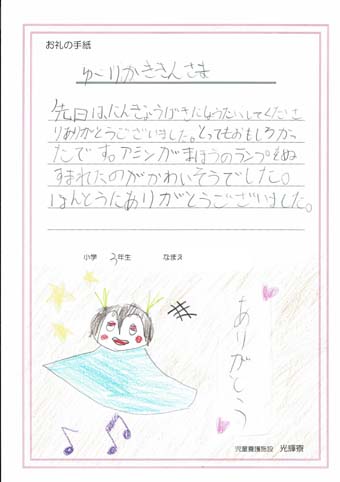 お礼の手紙
ゆーりかききんさま
先日はにんぎょうげきにしょうたいしてくださ
りありがとうございました。とってもおもしろかっ
たです。アミンがまほうのランプをぬ
すまれたのがかわいそうでした。
ほんとうにありがとうございました。
小学 3年生 なまえ
ありがとう
児童養護施設 光輝寮